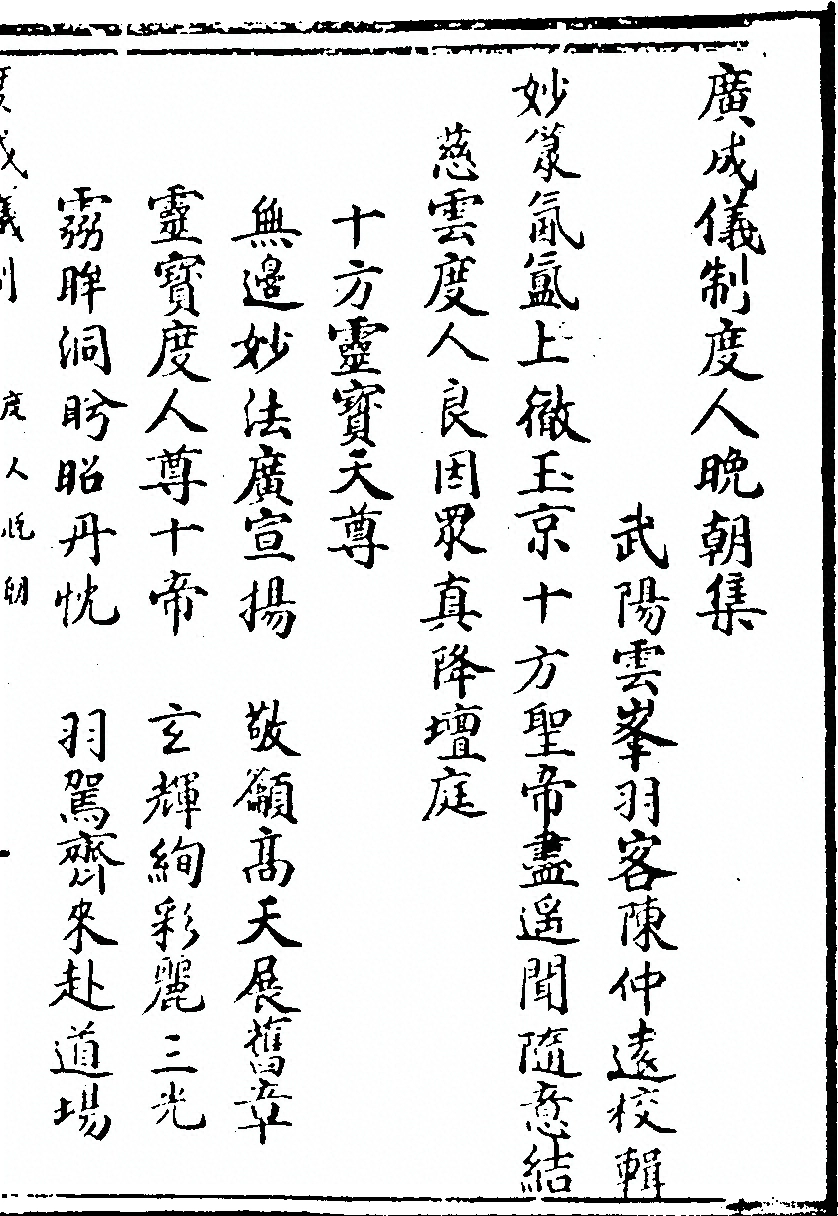 廣成儀制度人晚朝集
武陽雲峯羽客陳仲遠校輯
妙篆氤氳上徹玉京十方聖帝盡遥聞隨意結
慈雲度人良因眾真降壇庭
十方靈寶天尊
無邊妙法廣宣揚　敬籲高天展舊章
靈寶度人尊十帝　玄輝絢彩麗三光
霧眸洞盻昭丹忱　羽駕齊來赴道場
度人晚朝